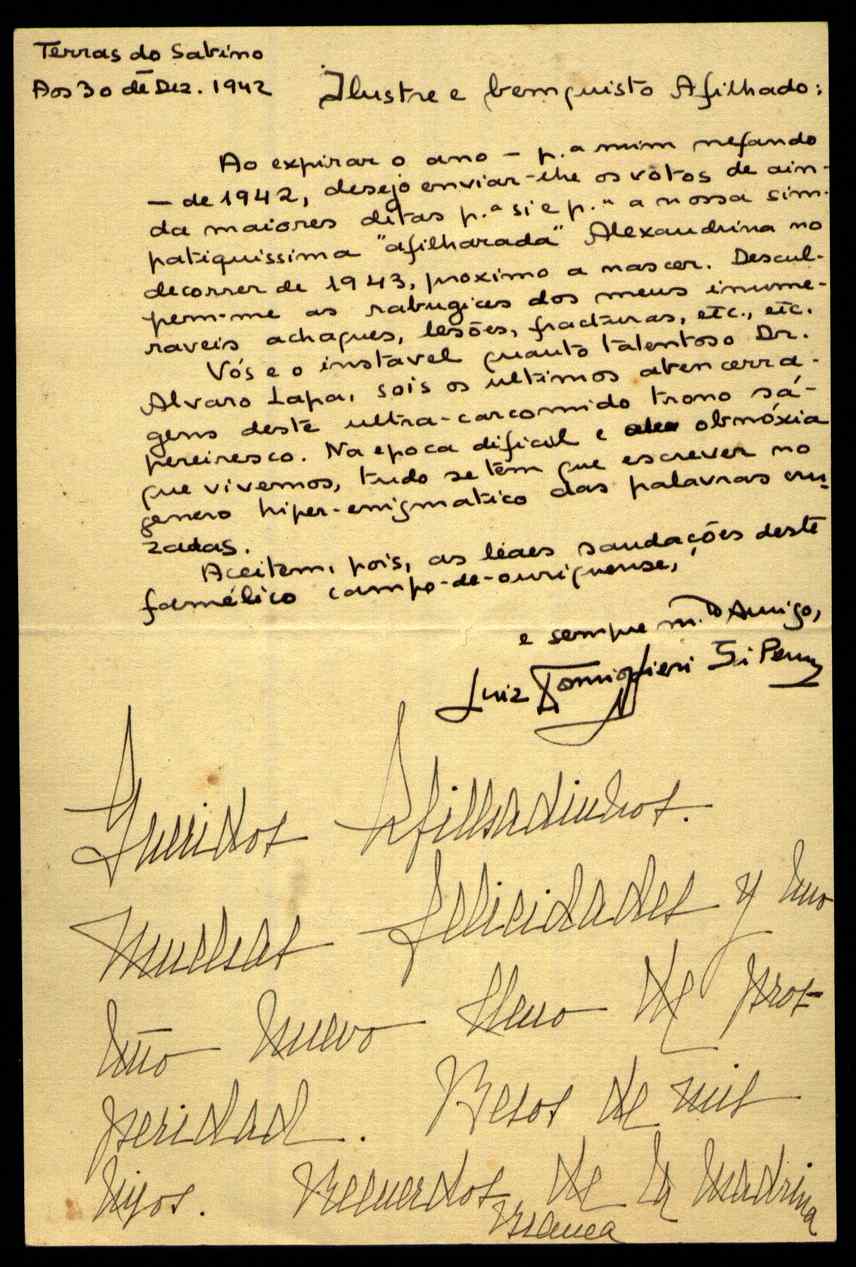 Terras do Sabino
Aos 30 de Dez. 1942
Ilustre e bemquisto Afilhado:
Ao expirar o ano — p.ª mim nefando
— de 1942, desejo enviar-lhe os votos de ain-
da maiores ditas p.ª si e p.ª a nossa sim-
patiquissima "afilharada" Alexandrina no
decorrer de 1943, proximo a nascer. Descul-
pem-me as rabugices dos meus inume-
raveis achaques, lesões, fracturas, etc., etc.
Vós e o instavel quanto talentoso Dr.
Alvaro Lapa, sois os ultimos abencerra-
gens deste ultra-carcomido trono sá-
pereiresco. Na epoca dificil e obnóxia
que vivemos, tudo se tem que escrever no
genero hiper-enigmatico das palavras cru-
zadas.
Aceitem, pois, as leaes saudações deste
famélico campo-de-ouriquense,
e sempre m.to Amigo,
Luiz
Queridos Afilhadinhos.
Muchas felicidades y uno
Año nuevo lleno de pros-
peridad. Besos de mis
hijos. Recuerdos de la Madrina
Bianca